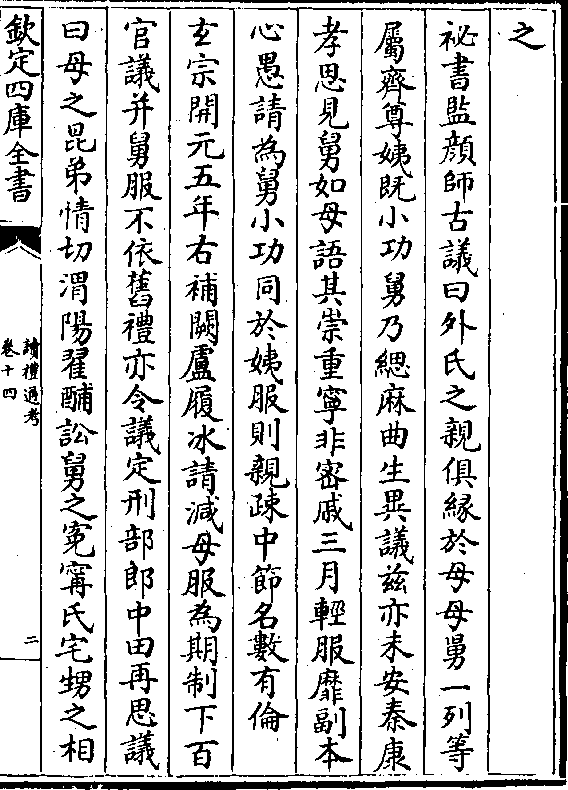 之
祕書監顔師古議曰外氏之親俱縁於母母舅一列等
屬齊尊姨既小功舅乃緦麻曲生異議茲亦未安秦康
孝思見舅如母語其崇重寧非密戚三月輕服靡副本
心愚請為舅小功同於姨服則親疎中節名數有倫
玄宗開元五年右補闕盧履冰請減母服為期制下百
官議并舅服不依舊禮亦令議定刑部郎中田再思議
曰母之昆弟情切渭陽翟酺訟舅之寃甯氏宅甥之相
欽定四庫全書
讀禮通考
卷十四
二